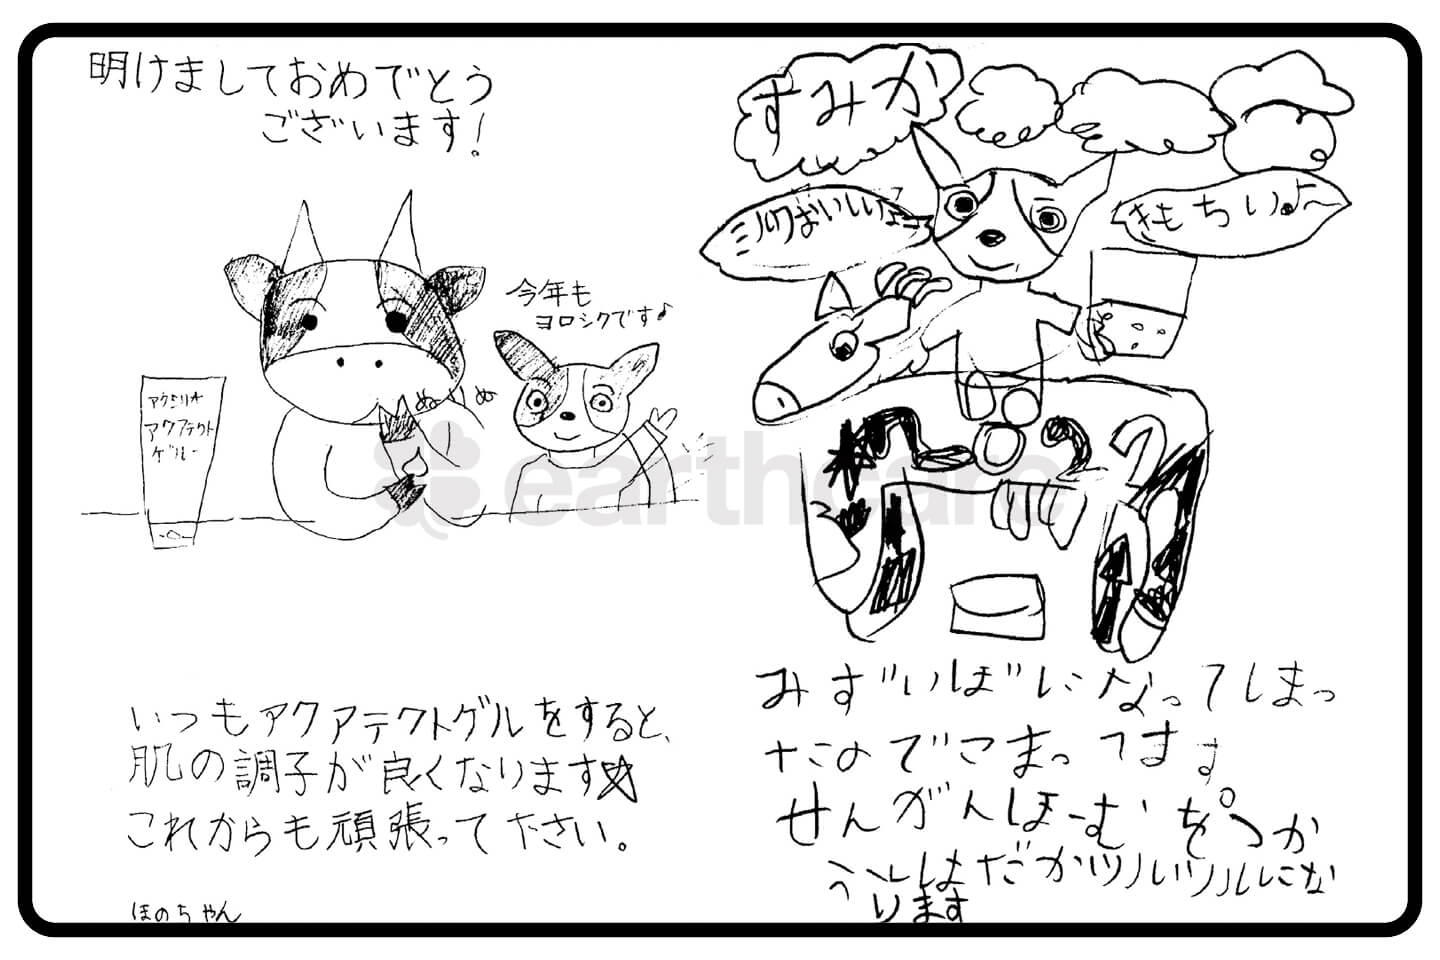 明けましておめでとう
ございます!
今年も
ヨロシクです♪
アクミリオ
アクアテクト
ゲル
ぬ〜りぬ
いつもアクアテクトゲルをすると、
肌の調子が良くなります☆
これからも頑張って下さい。
ほのちゃん
すみか
ミルクおいしいよー
きもちい♪〜
earthcare
みずいぼになってしまっ
たのでこまってます
せんがんほーむを つか
うとはだがツルツルにな
ります